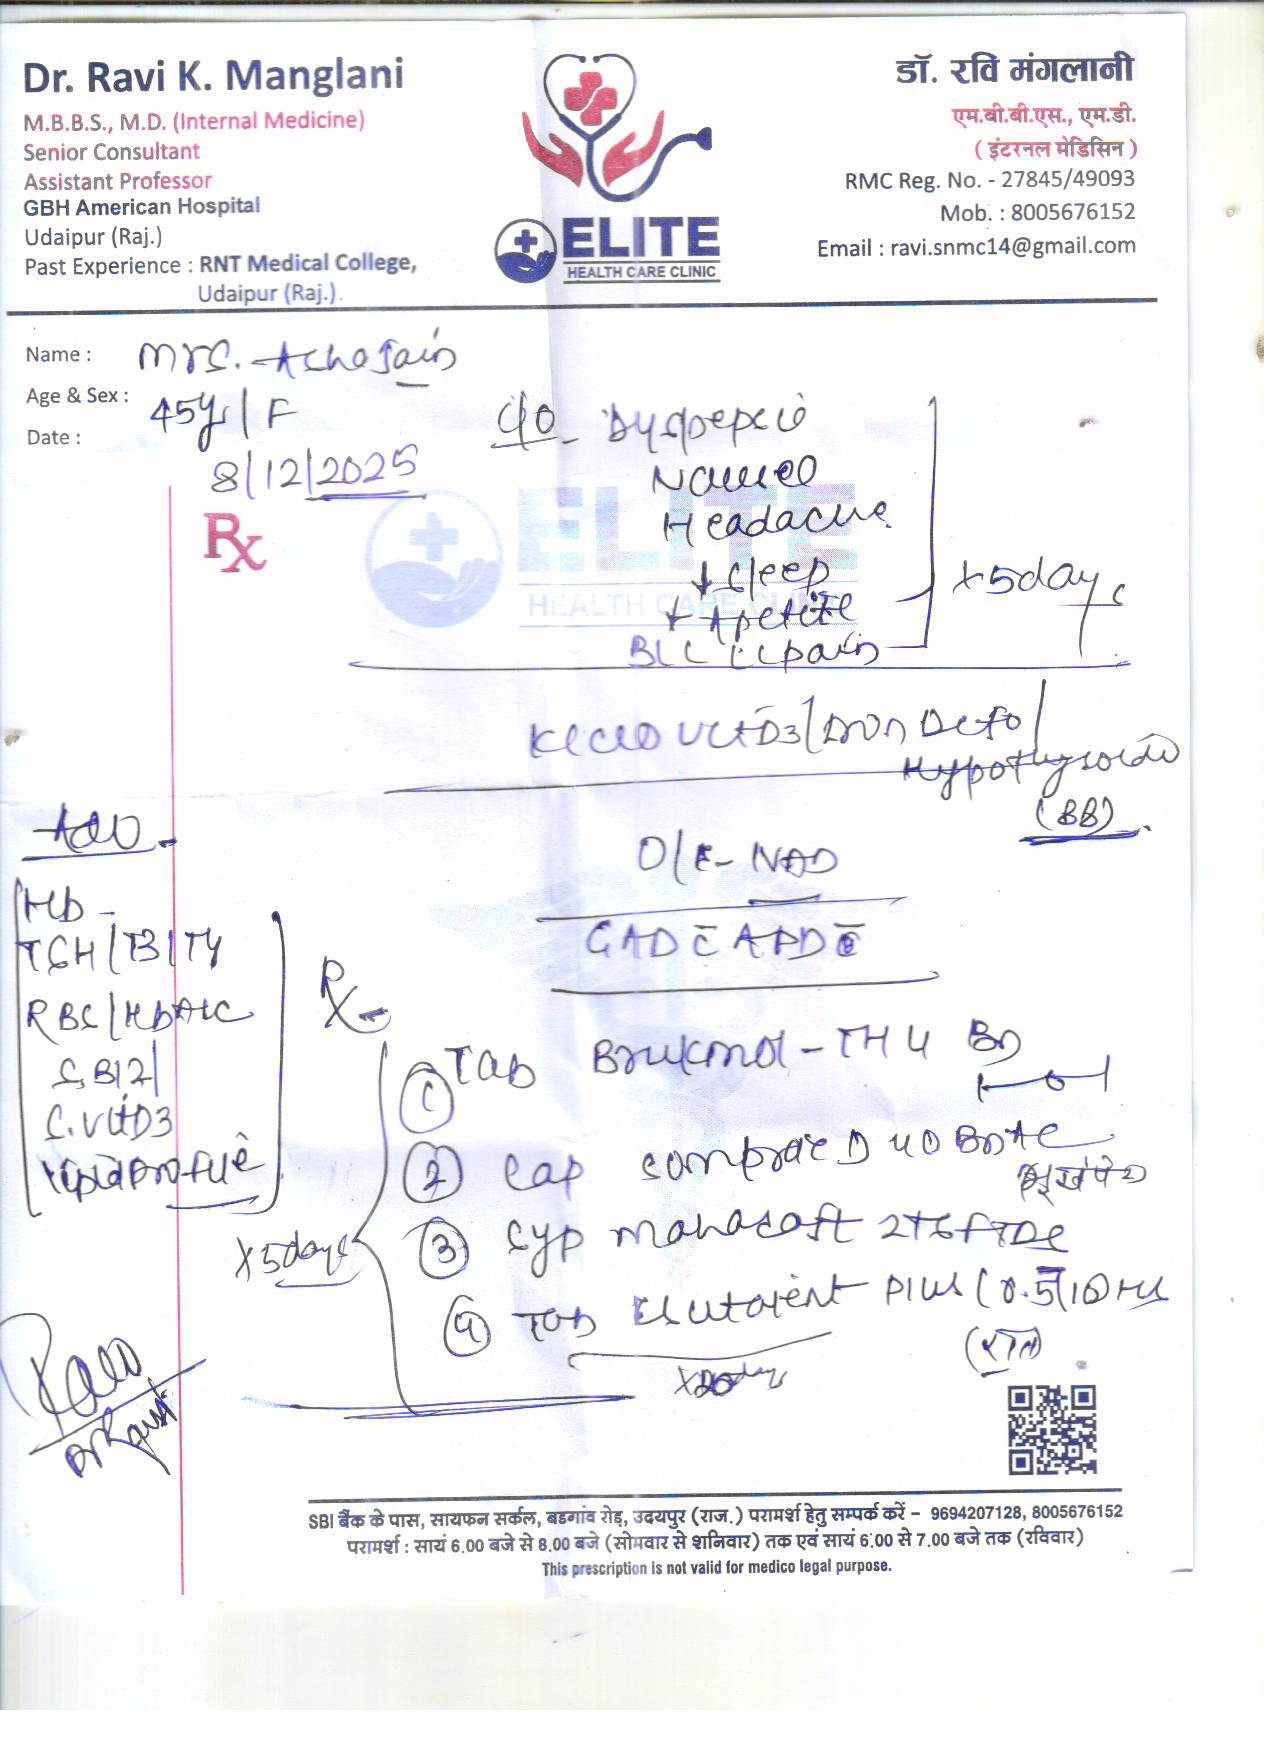 Dr. Ravi K. Manglani
M.B.B.S., M.D. (Internal Medicine)
Senior Consultant
Assistant Professor
GBH American Hospital
Udaipur (Raj.)
Past Experience : RNT Medical College,
Udaipur (Raj.).
ELITE
HEALTH CARE CLINIC
डॉ. रवि मंगलानी
एम.बी.बी.एस., एम.डी.
( इंटरनल मेडिसिन )
RMC Reg. No. - 27845/49093
Mob. : 8005676152
Email : ravi.snmc14@gmail.com
Name : Mrs.
Age & Sex : 45yrs/F
Date : 8/12/2025
Rx
ELITE
HEALTH CARE CLINIC
C/O Dyspepsia
Nausea
Headache
↓ Sleep
↓ Apetite
pain
x 5days
VitD3/Iron Defi/
Hypothyroid
O/E- NAD
GAD c̄ APD
Adv -
Hb -
TSH/T3/T4
RBS/HbA1c
S.B12/
S.VitD3
lipid profile
Rx
① Tab - TH 4 BD
② Cap D 40
③ Syp 2TSF TDS
④ Tab Plus (0.5/10) HS
(रात)
x 5days
SBI बैंक के पास, सायफन सर्कल, बडगांव रोड़, उदयपुर (राज.) परामर्श हेतु सम्पर्क करें – 9694207128, 8005676152
परामर्श : सायं 6.00 बजे से 8.00 बजे (सोमवार से शनिवार) तक एवं सायं 6.00 से 7.00 बजे तक (रविवार)
This prescription is not valid for medico legal purpose.